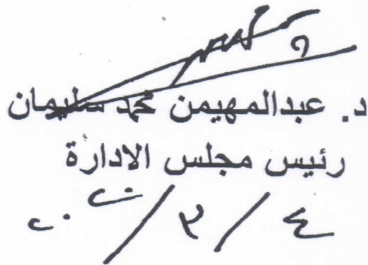 د. عبدالمهيمن محمد سليمان
رئيس مجلس الادارة
٤ / ٣ / ٢٠٢٠